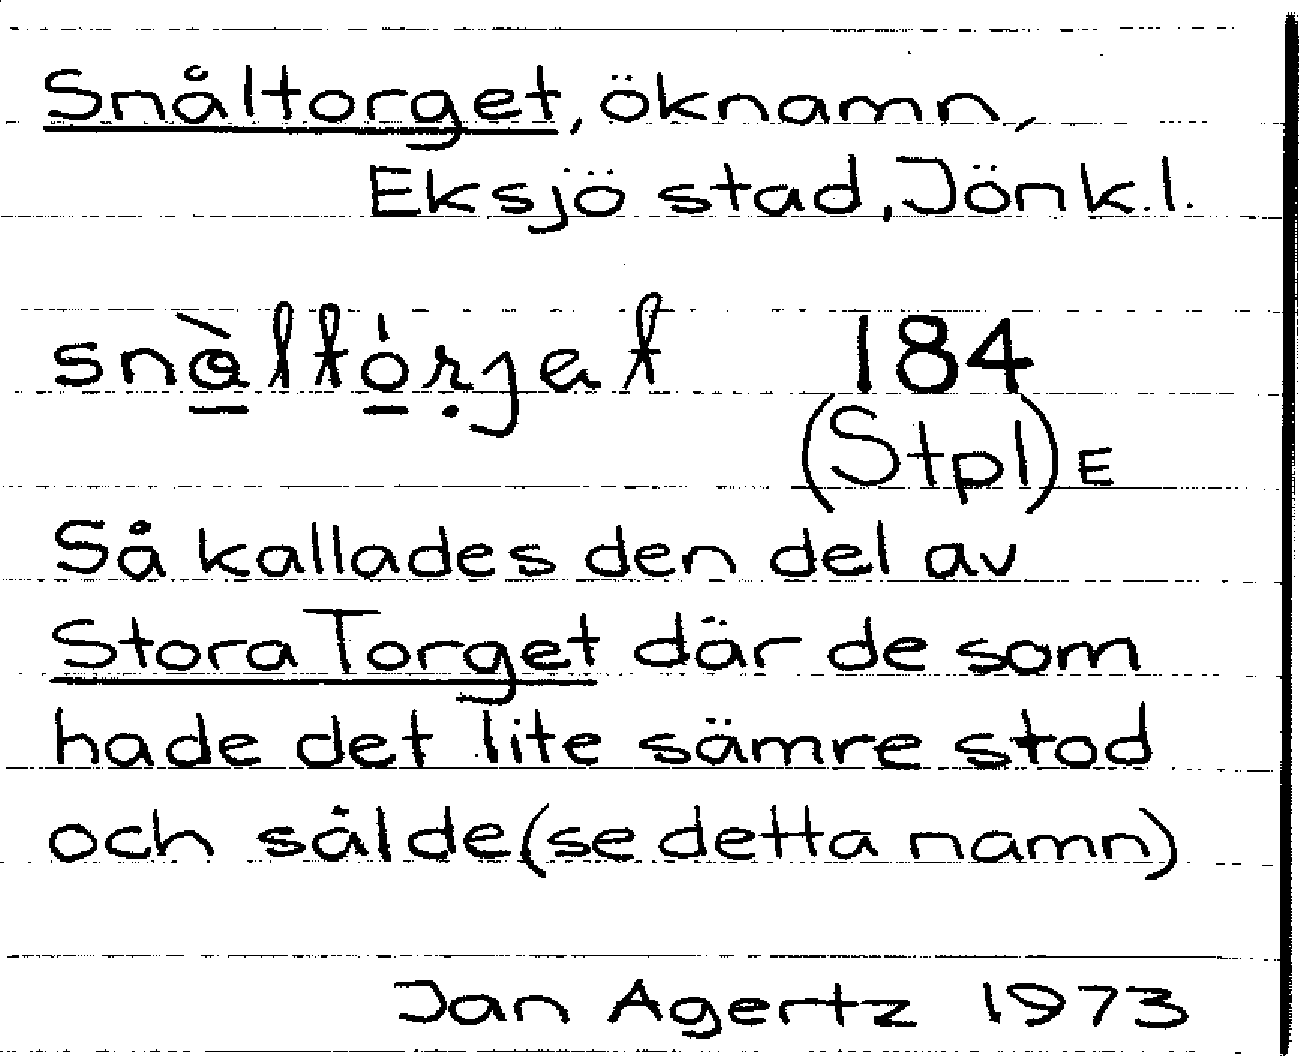 Snåltorget, öknamn,
Eksjö stad, Jönk.l.
snò̲ltó̲ṛjet 184
(Stpl) E
Så kallades den del av
Stora Torget där de som
hade det lite sämre stod
och sålde (se detta namn)
Jan Agertz 1973